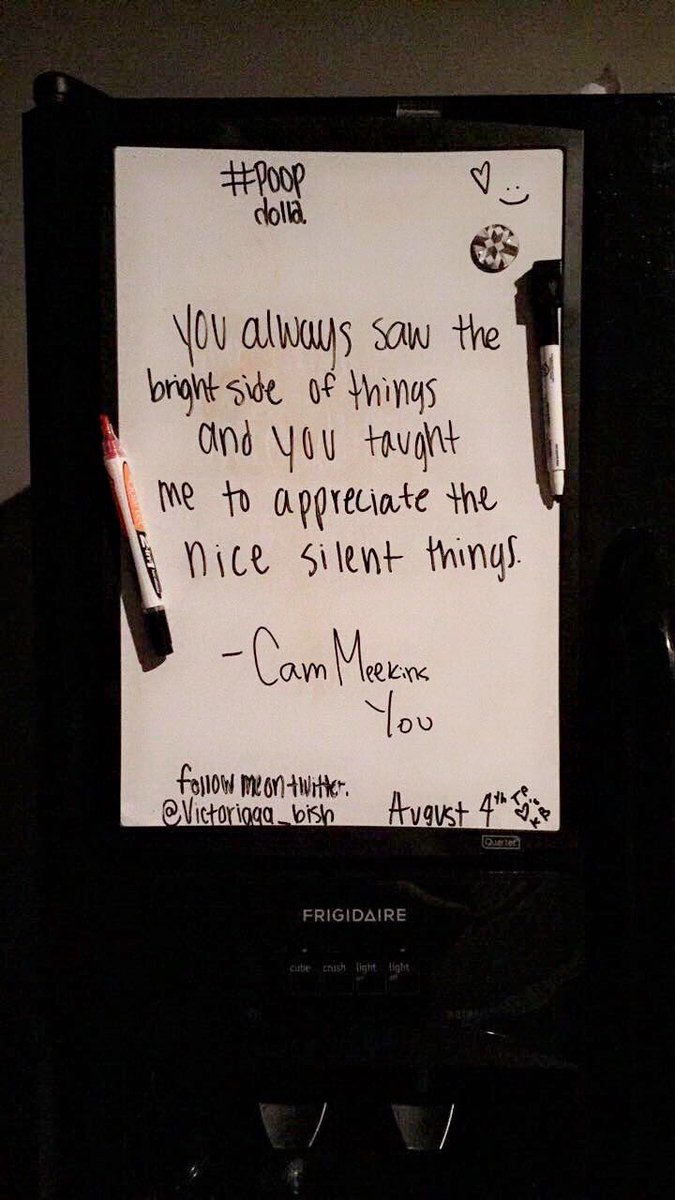 #Poop
dolla.
You always saw the
bright side of things
and you taught
me to appreciate the
nice silent things.
- Cam Meekins
You
follow me on twitter.
@Victoriaaa_bish
August 4th
Quartet
FRIGIDAIRE
cube crush light light